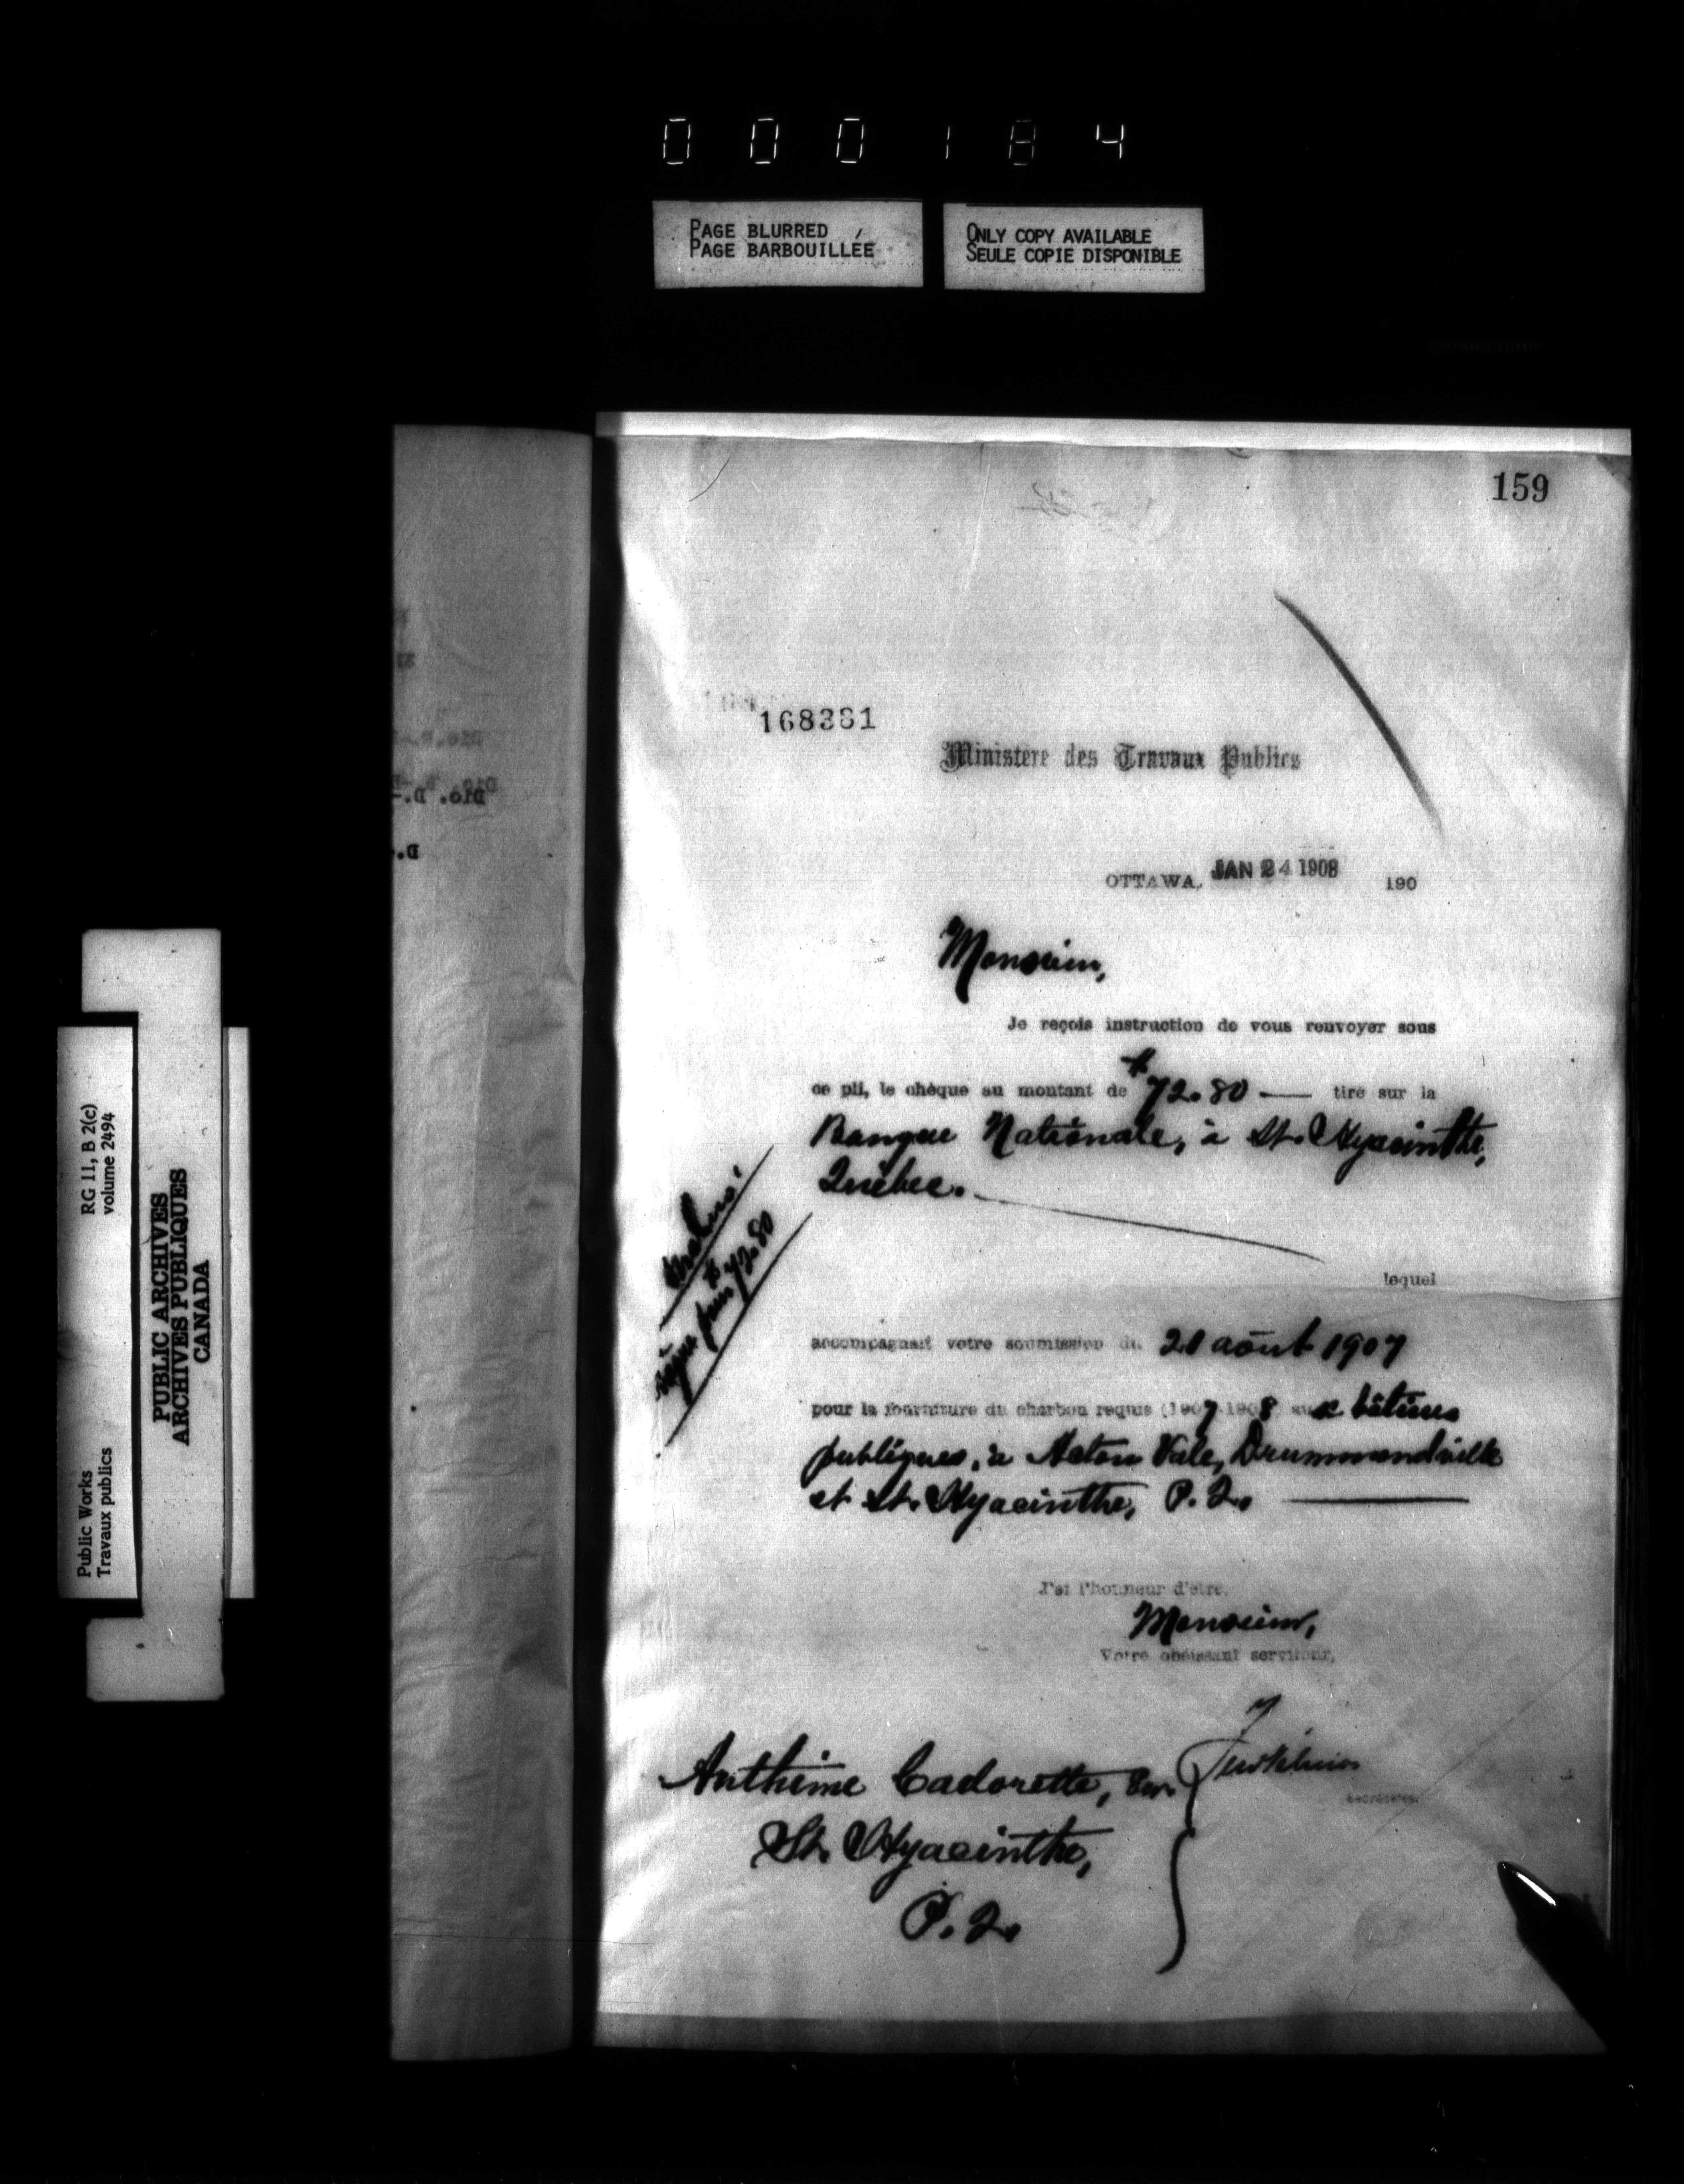 000184
PAGE BLURRED
PAGE BARBOUILLÉE
ONLY COPY AVAILABLE
SEULE COPIE DISPONIBLE
159
168381
Ministere des Travaux Publics
OTTAWA, JAN 24 1908 190
Monsieur,
Je reçois instruction de vous renvoyer sous
ce pli, le chèque au montant de $72.80 — tiré sur la
Banque Nationale, à St. Hyacinthe,
Québec.
lequel
accompagnait votre soumission du 21 août 1907
pour la fourniture du charbon requis (1907-1908) aux bâtisses
publiques, à Acton Vale, Drummondville
et St. Hyacinthe, P. Q.
pour $72.80
J'ai l'honneur d'être,
Monsieur,
Votre obéissant serviteur,
Secrétaire.
Anthime Cadorette, Ecr.
St. Hyacinthe,
P. Q.
Public Works
Travaux publics
RG 11, B 2(c)
volume 2494
PUBLIC ARCHIVES
ARCHIVES PUBLIQUES
CANADA